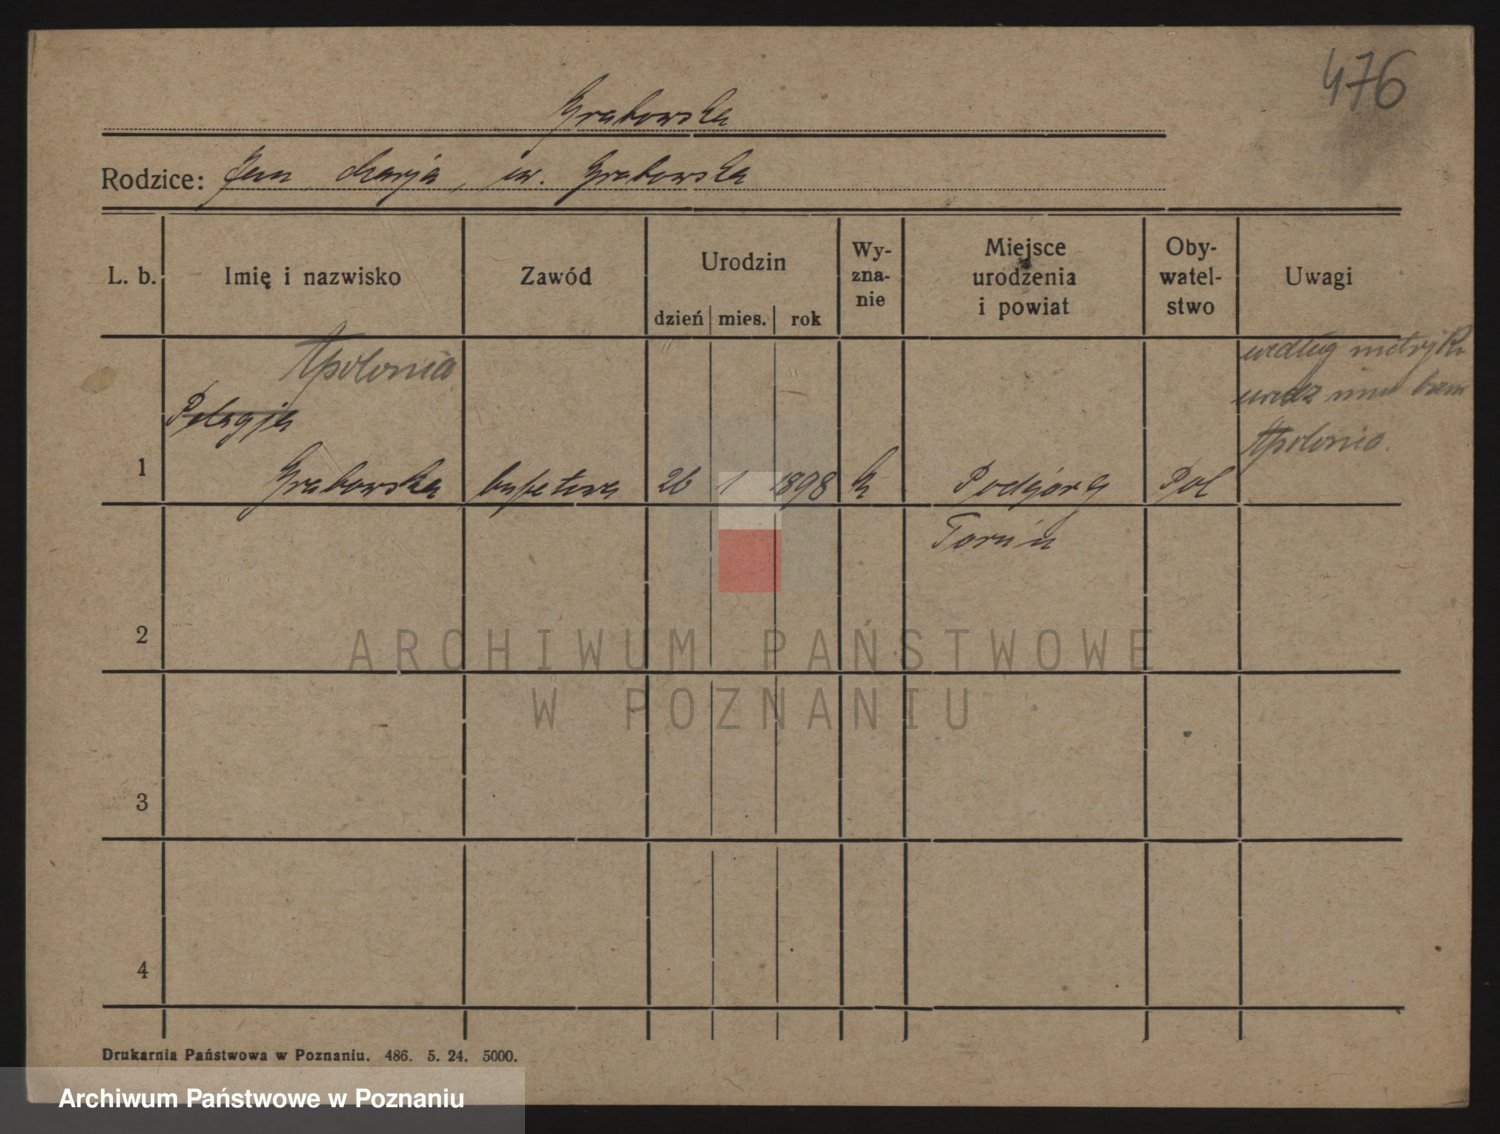 476
Grabowska
Rodzice: Jan, Marja, ur. Grabowska
L. b. Imię i nazwisko Zawód Urodzin dzień mies. rok Wy-zna-nie Miejsce urodzenia i powiat Oby-watel-stwo Uwagi
Apolonia
według metryki
Pelagja
urodz imię brzm
Apolonia.
1 Grabowska bufetowa 26 1 1898 k Podgórz Pol
Toruń
2
ARCHIWUM PAŃSTWOWE
W POZNANIU
3
4
Drukarnia Państwowa w Poznaniu. 486. 5. 24. 5000.
Archiwum Państwowe w Poznaniu